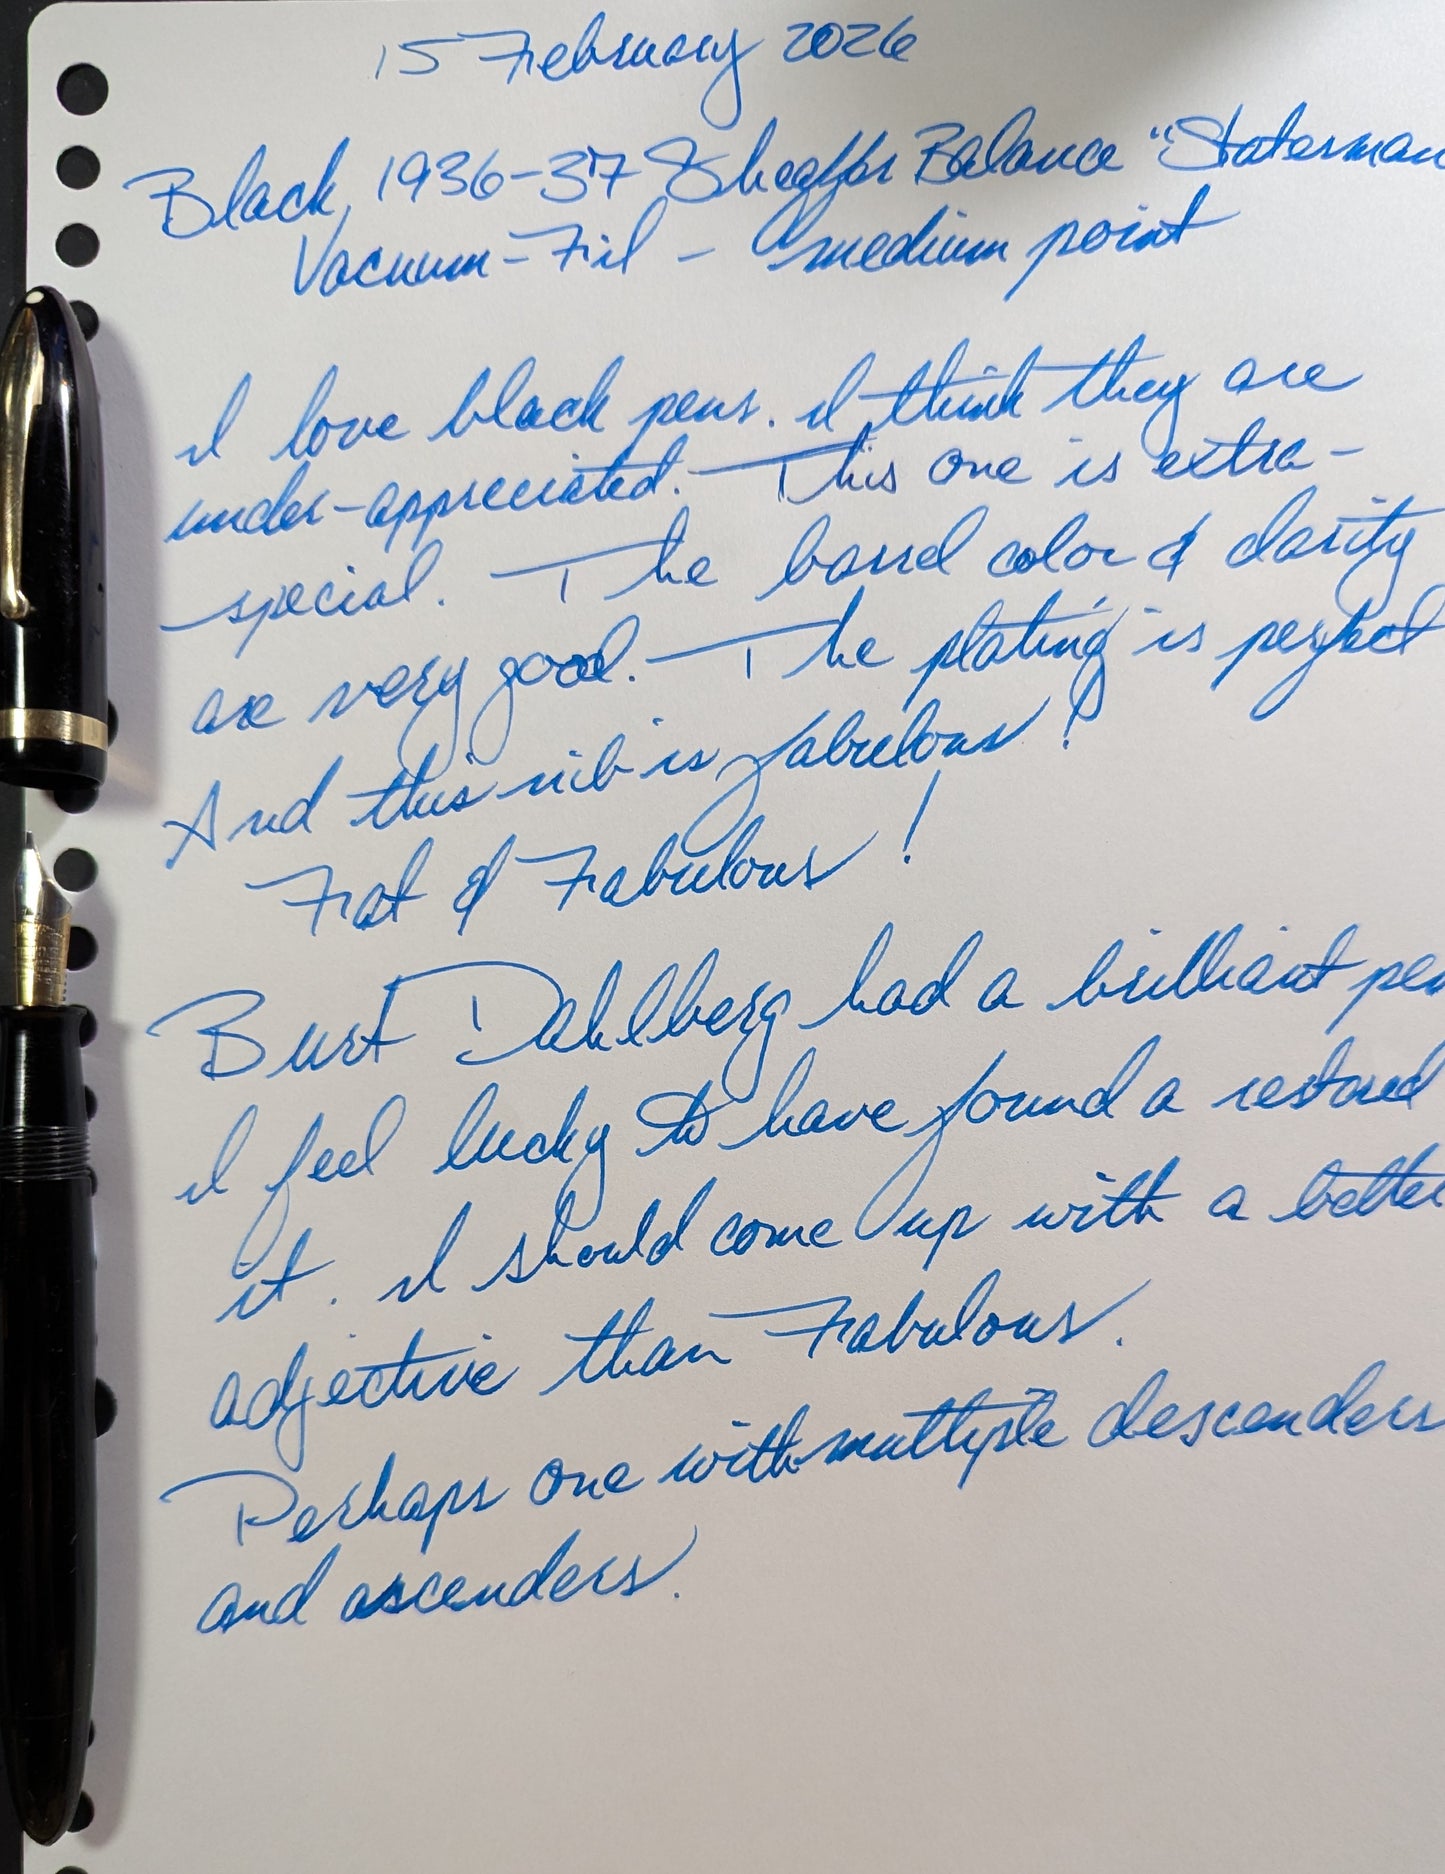 15 February 2026
Black, 1936-37 Sheaffer Balance "Statesman
Vacuum-Fil - medium point
I love black pens. I think they are
under-appreciated. This one is extra-
special. The barrel color & clarity
are very good. The plating is perfect
And this nib is fabulous!
Fat & Fabulous!
Burt Dahlberg had a brilliant pen
I feel lucky to have found a restored
it. I should come up with a better
adjective than Fabulous.
Perhaps one with multiple descenders
and ascenders.